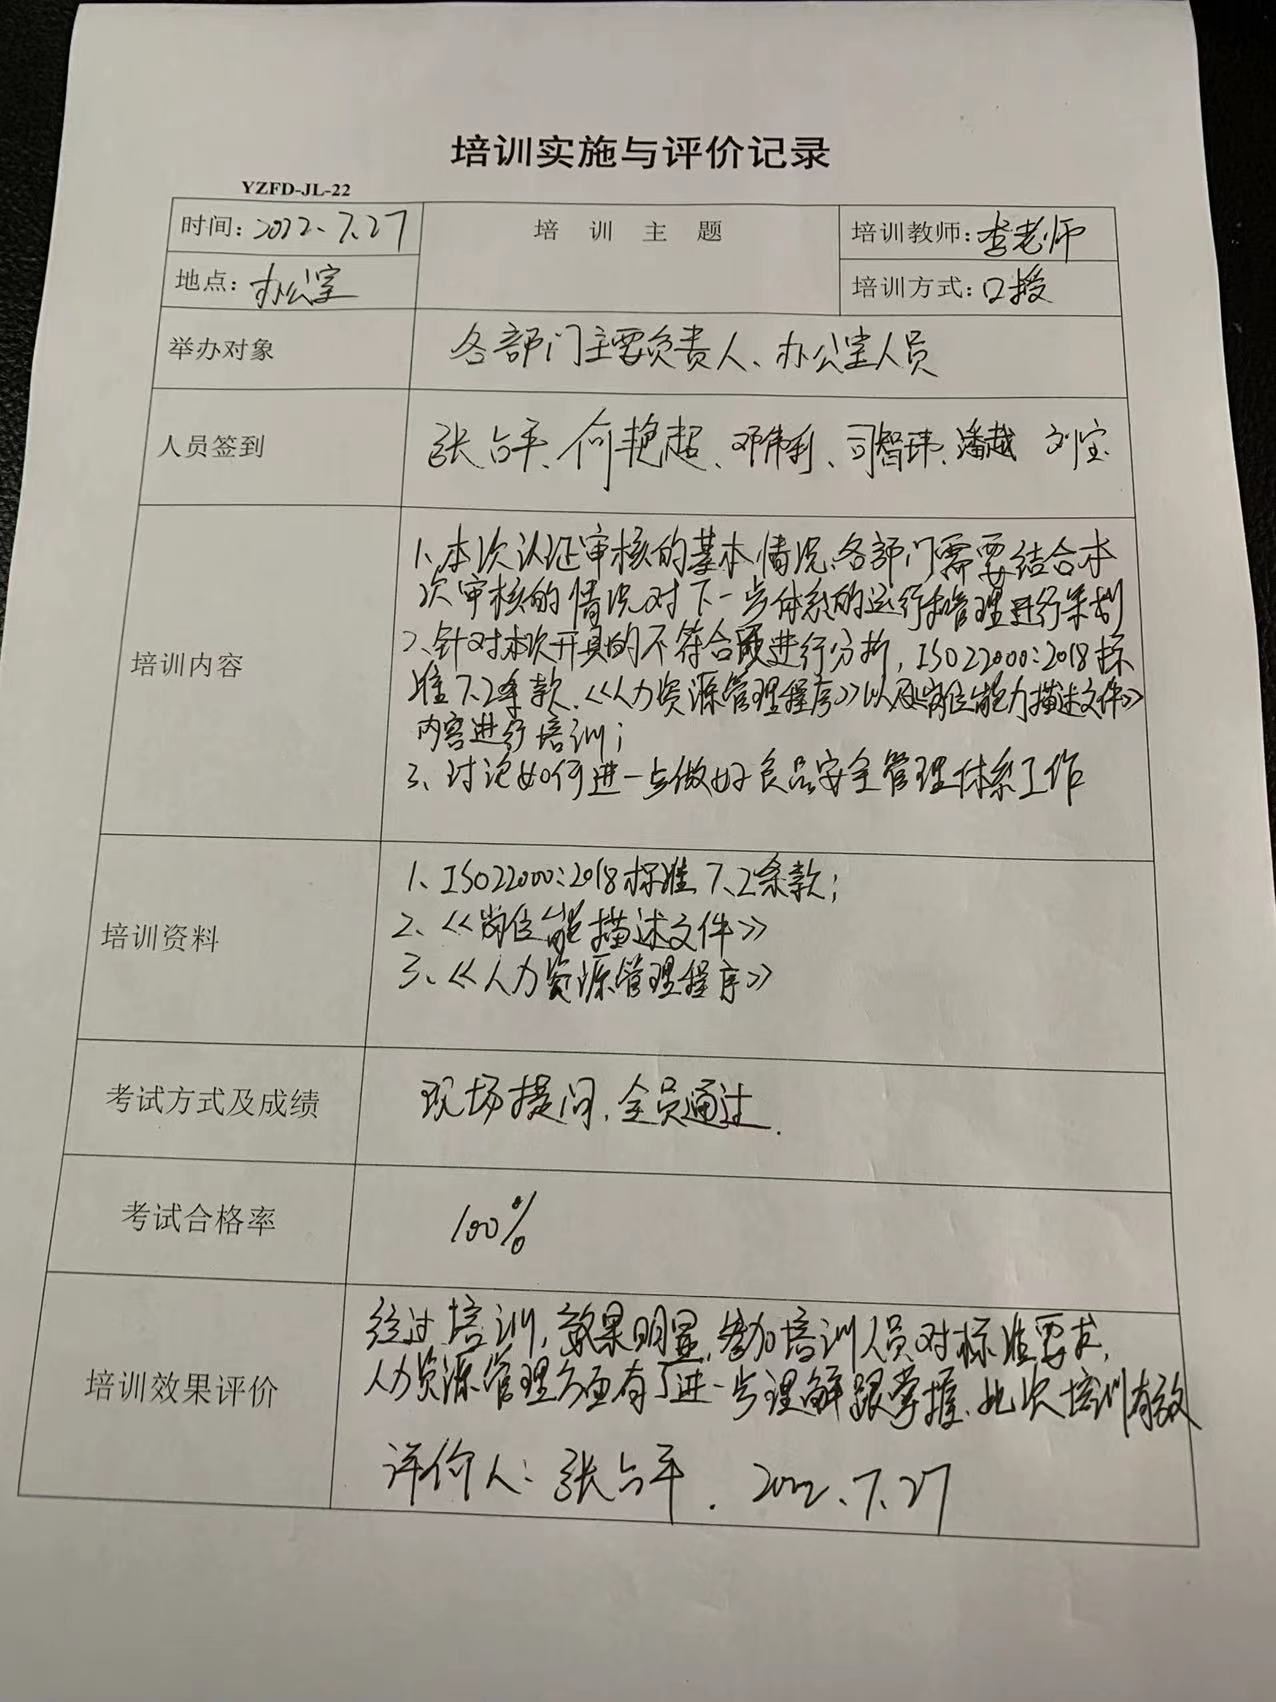 培训实施与评价记录
YZFD-JL-22
时间：2022.7.27
培训主题
培训教师：李老师
地点：办公室
培训方式：口授
举办对象
各部门主要负责人、办公室人员
人员签到
张占平、何艳超、邓伟利、司智玮、潘越 刘宝
培训内容
1、本次认证审核的基本情况、各部门需要结合本
次审核的情况对下一步体系的运行和管理进行策划
2、针对本次开具的不符合项进行分析，ISO22000：2018标
准7.2条款、《人力资源管理程序》以及《岗位能力描述文件》
内容进行培训；
3、讨论如何进一步做好食品安全管理体系工作
培训资料
1、ISO22000：2018标准7.2条款；
2、《岗位能描述文件》
3、《人力资源管理程序》
考试方式及成绩
现场提问，全员通过.
考试合格率
100%
培训效果评价
经过培训，效果明显，参加培训人员对标准要求，
人力资源管理方面有了进一步理解跟掌握，此次培训有效
评价人：张占平. 2022.7.27